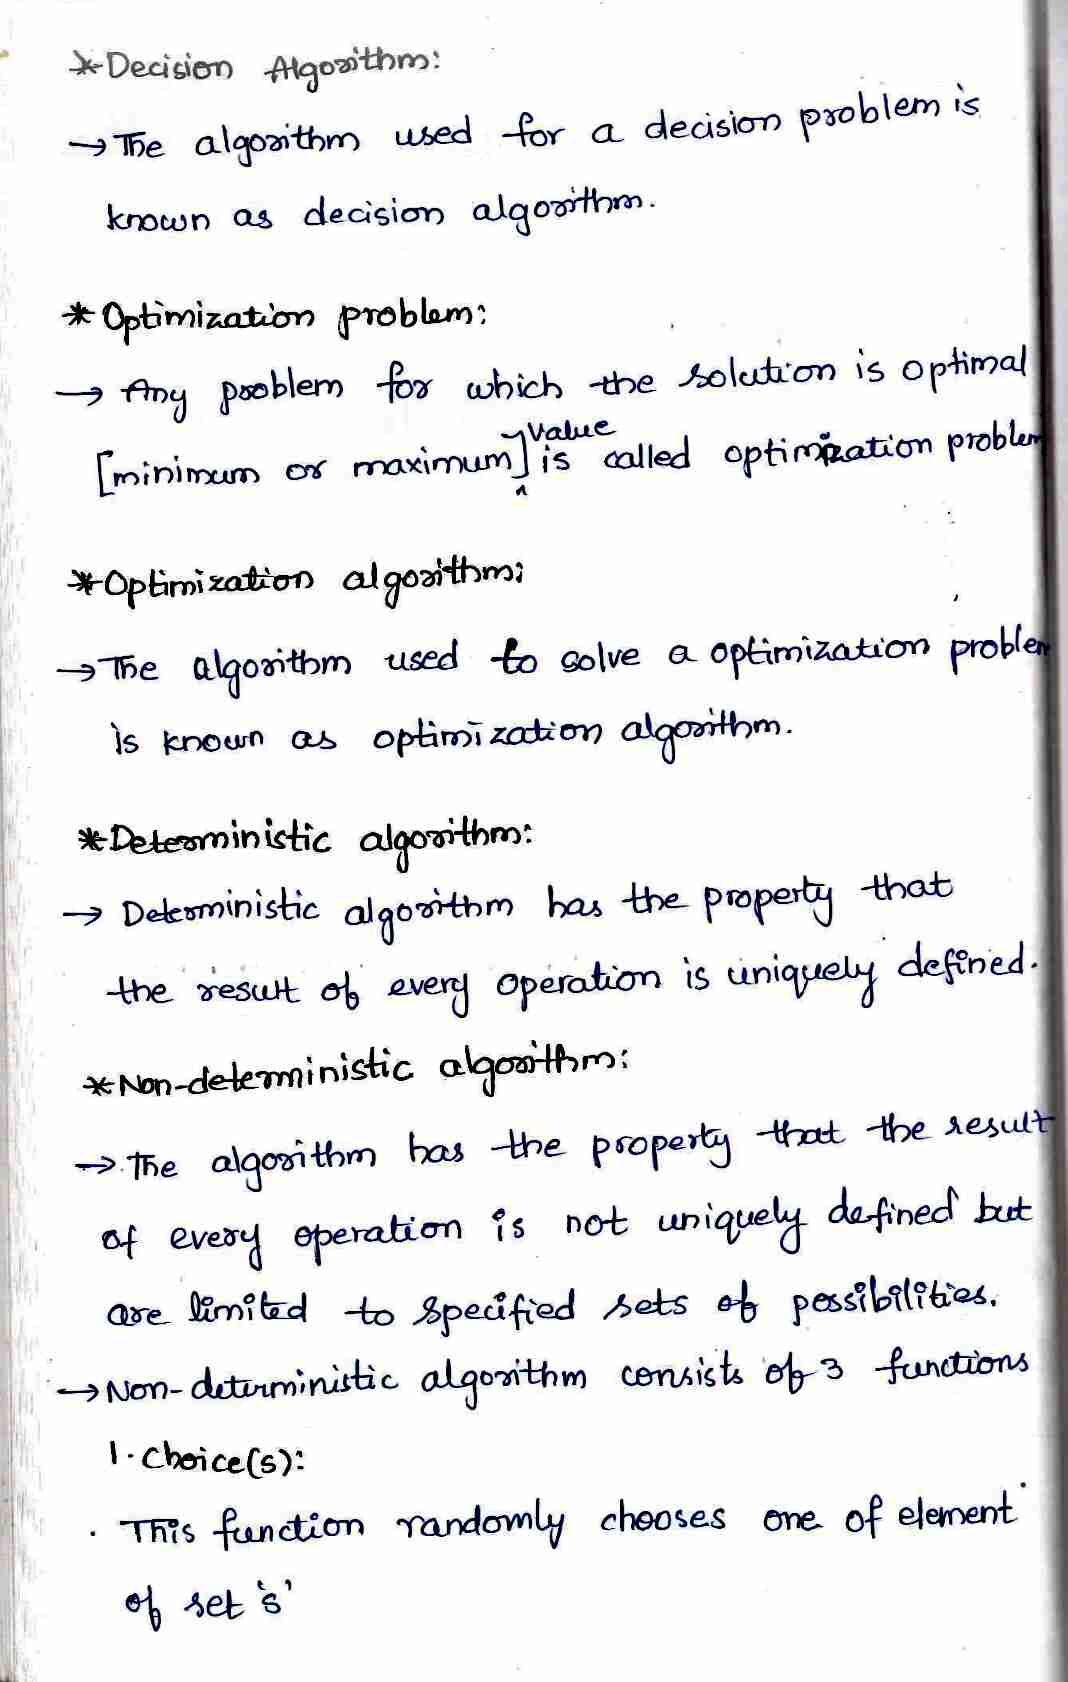 * Decision Algorithm:
→ The algorithm used for a decision problem is
known as decision algorithm.
* Optimization problem:
→ Any problem for which the solution is optimal
[minimum or maximum] value is called optimization problem
* Optimization algorithm:
→ The algorithm used to solve a optimization problem
is known as optimization algorithm.
* Deterministic algorithm:
→ Deterministic algorithm has the property that
the result of every operation is uniquely defined.
* Non-deterministic algorithm:
→ The algorithm has the property that the result
of every operation is not uniquely defined but
are limited to specified sets of possibilities.
→ Non-deterministic algorithm consists of 3 functions
1. Choice(s):
. This function randomly chooses one of element
of set 's'